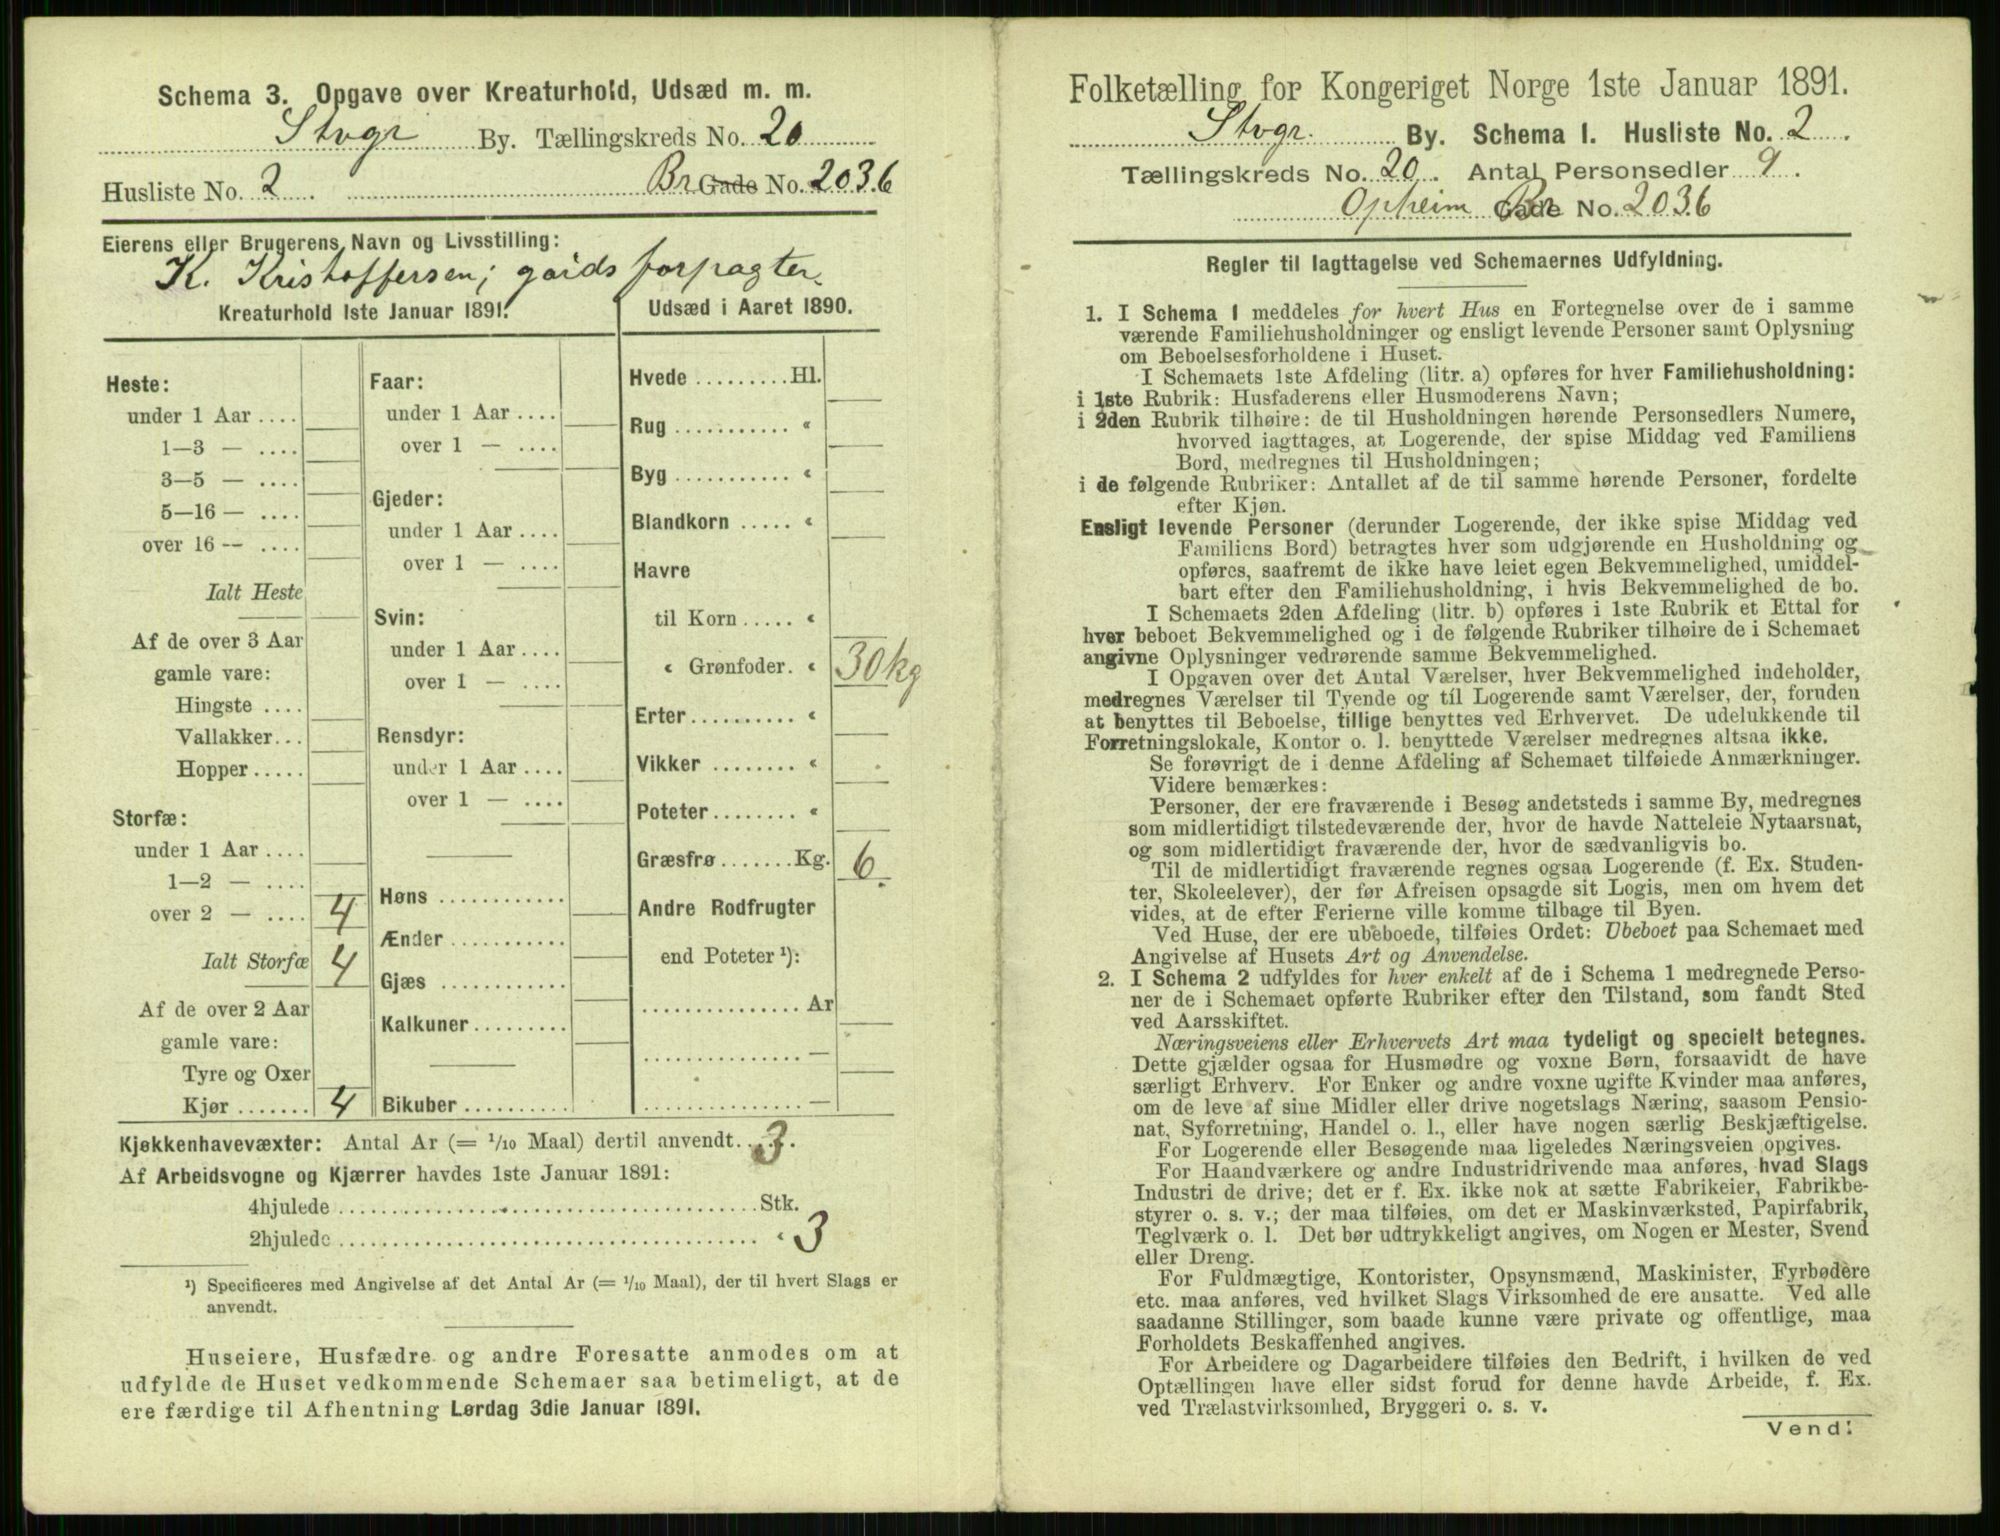 Schema 3. Opgave over Kreaturhold, Udsæd m. m.
Stvgr By. Tællingskreds No. 20
Husliste No. 2 Br Gade No. 2036
Eierens eller Brugerens Navn og Livsstilling:
K. Kristoffersen; gaardsforpagter.
Kreaturhold 1ste Januar 1891.
Heste:
under 1 Aar ....
1—3 — ....
3—5 — ....
5—16 — ....
over 16 — ....
Ialt Heste
Af de over 3 Aar
gamle vare:
Hingste ....
Vallakker...
Hopper.....
Storfæ:
under 1 Aar ....
1—2 — ....
over 2 — .... 4
Ialt Storfæ 4
Af de over 2 Aar
gamle vare:
Tyre og Oxer
Kjør....... 4
Faar:
under 1 Aar ....
over 1 — ....
Gjeder:
under 1 Aar ....
over 1 — ....
Svin:
under 1 Aar ....
over 1 — ....
Rensdyr:
under 1 Aar ....
over 1 — ....
Høns ............
Ænder...........
Gjæs ............
Kalkuner.........
Bikuber ..........
Udsæd i Aaret 1890.
Hvede .........Hl.
Rug ........... «
Byg ........... «
Blandkorn ..... «
Havre
til Korn..... «
« Grønfoder. « 30 kg
Erter.......... «
Vikker ........ «
Poteter........ «
Græsfrø.......Kg. 6.
Andre Rodfrugter
end Poteter ¹):
............... Ar
............... —
............... —
Kjøkkenhavevæxter: Antal Ar (= 1/10 Maal) dertil anvendt.. 3.
Af Arbeidsvogne og Kjærrer havdes 1ste Januar 1891:
4hjulede ........................................Stk.
2hjulede ........................................ « 3
¹) Specificeres med Angivelse af det Antal Ar (= 1/10 Maal), der til hvert Slags er
anvendt.
Huseiere, Husfædre og andre Foresatte anmodes om at
udfylde de Huset vedkommende Schemaer saa betimeligt, at de
ere færdige til Afhentning Lørdag 3die Januar 1891.
Folketælling for Kongeriget Norge 1ste Januar 1891.
Stvgr. By. Schema I. Husliste No. 2
Tællingskreds No. 20. Antal Personsedler 9.
Opheim Br Gade No. 2036
Regler til Iagttagelse ved Schemaernes Udfyldning.
1. I Schema 1 meddeles for hvert Hus en Fortegnelse over de i samme
værende Familiehusholdninger og ensligt levende Personer samt Oplysning
om Beboelsesforholdene i Huset.
I Schemaets 1ste Afdeling (litr. a) opføres for hver Familiehusholdning:
i 1ste Rubrik: Husfaderens eller Husmoderens Navn;
i 2den Rubrik tilhøire: de til Husholdningen hørende Personsedlers Numere,
hvorved iagttages, at Logerende, der spise Middag ved Familiens
Bord, medregnes til Husholdningen;
i de følgende Rubriker: Antallet af de til samme hørende Personer, fordelte
efter Kjøn.
Ensligt levende Personer (derunder Logerende, der ikke spise Middag ved
Familiens Bord) betragtes hver som udgjørende en Husholdning og
opføres, saafremt de ikke have leiet egen Bekvemmelighed, umiddel-
bart efter den Familiehusholdning, i hvis Bekvemmelighed de bo.
I Schemaets 2den Afdeling (litr. b) opføres i 1ste Rubrik et Ettal for
hver beboet Bekvemmelighed og i de følgende Rubriker tilhøire de i Schemaet
angivne Oplysninger vedrørende samme Bekvemmelighed.
I Opgaven over det Antal Værelser, hver Bekvemmelighed indeholder,
medregnes Værelser til Tyende og til Logerende samt Værelser, der, foruden
at benyttes til Beboelse, tillige benyttes ved Erhvervet. De udelukkende til
Forretningslokale, Kontor o. l. benyttede Værelser medregnes altsaa ikke.
Se forøvrigt de i denne Afdeling af Schemaet tilføiede Anmærkninger.
Videre bemærkes:
Personer, der ere fraværende i Besøg andetsteds i samme By, medregnes
som midlertidigt tilstedeværende der, hvor de havde Natteleie Nytaarsnat,
og som midlertidigt fraværende der, hvor de sædvanligvis bo.
Til de midlertidigt fraværende regnes ogsaa Logerende (f. Ex. Studen-
ter, Skoleelever), der før Afreisen opsagde sit Logis, men om hvem det
vides, at de efter Ferierne ville komme tilbage til Byen.
Ved Huse, der ere ubeboede, tilføies Ordet: Ubeboet paa Schemaet med
Angivelse af Husets Art og Anvendelse.
2. I Schema 2 udfyldes for hver enkelt af de i Schema 1 medregnede Perso-
ner de i Schemaet opførte Rubriker efter den Tilstand, som fandt Sted
ved Aarsskiftet.
Næringsveiens eller Erhvervets Art maa tydeligt og specielt betegnes.
Dette gjælder ogsaa for Husmødre og voxne Børn, forsaavidt de have
særligt Erhverv. For Enker og andre voxne ugifte Kvinder maa anføres,
om de leve af sine Midler eller drive nogetslags Næring, saasom Pensio-
nat, Syforretning, Handel o. l., eller have nogen særlig Beskjæftigelse.
For Logerende eller Besøgende maa ligeledes Næringsveien opgives.
For Haandværkere og andre Industridrivende maa anføres, hvad Slags
Industri de drive; det er f. Ex. ikke nok at sætte Fabrikeier, Fabrikbe-
styrer o. s. v.; der maa tilføies, om det er Maskinværksted, Papirfabrik,
Teglværk o. l. Det bør udtrykkeligt angives, om Nogen er Mester, Svend
eller Dreng.
For Fuldmægtige, Kontorister, Opsynsmænd, Maskinister, Fyrbødere
etc. maa anføres, ved hvilket Slags Virksomhed de ere ansatte. Ved alle
saadanne Stillinger, som baade kunne være private og offentlige, maa
Forholdets Beskaffenhed angives.
For Arbeidere og Dagarbeidere tilføies den Bedrift, i hvilken de ved
Optællingen have eller sidst forud for denne havde Arbeide, f. Ex.
ved Trælastvirksomhed, Bryggeri o. s. v.
Vend!